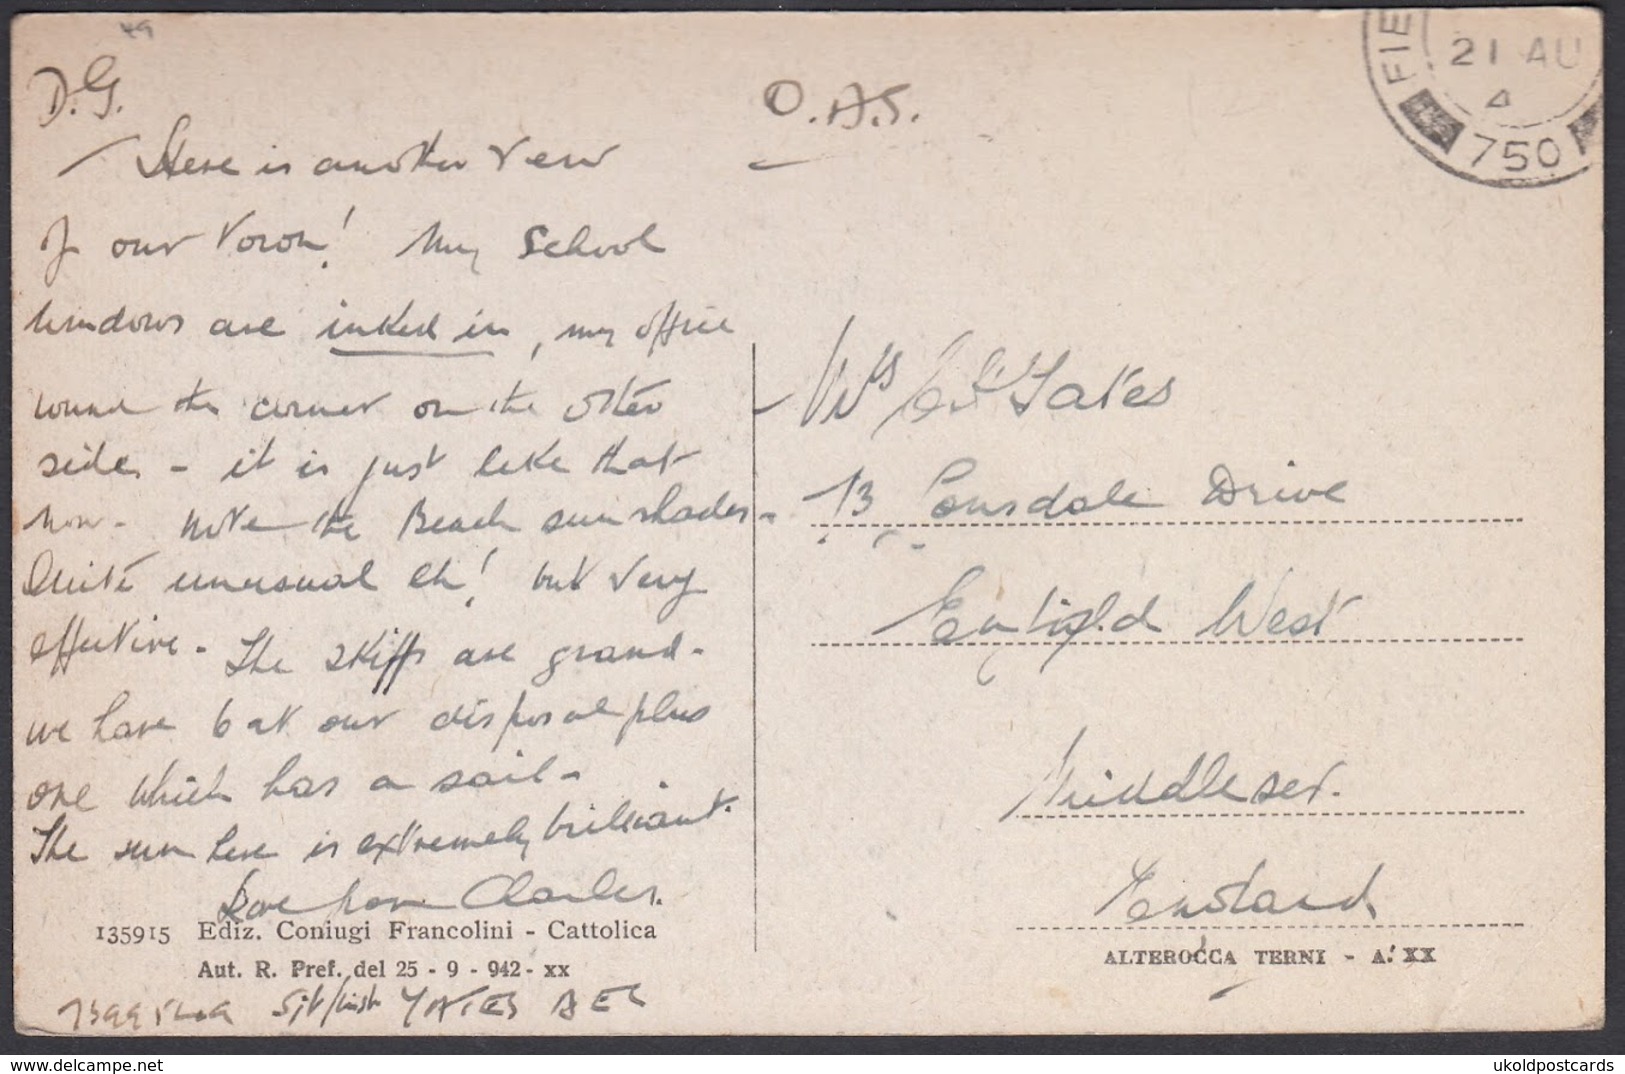 49
D.G.
O.A.S.
Here is another view
of our town! My School
windows are inked in, my office
round the corner on the other
side - it is just like that
now. Note the Beach sun shades.
Quite unusual eh! but very
effective. The skiffs are grand.
we have 6 at our disposal plus
one which has a sail.
The sun here is extremely brilliant.
Love from Charles.
135915 Ediz. Coniugi Francolini - Cattolica
Aut. R. Pref. del 25 - 9 - 942 - XX
Sjt/Inst YATES AEC
FIE
21 AU
4
750
Mrs Yates
13 Lonsdale Drive
Enfield West
Middlesex.
England
ALTEROCCA TERNI - A. XX
delcampe.net
ukoldpostcards